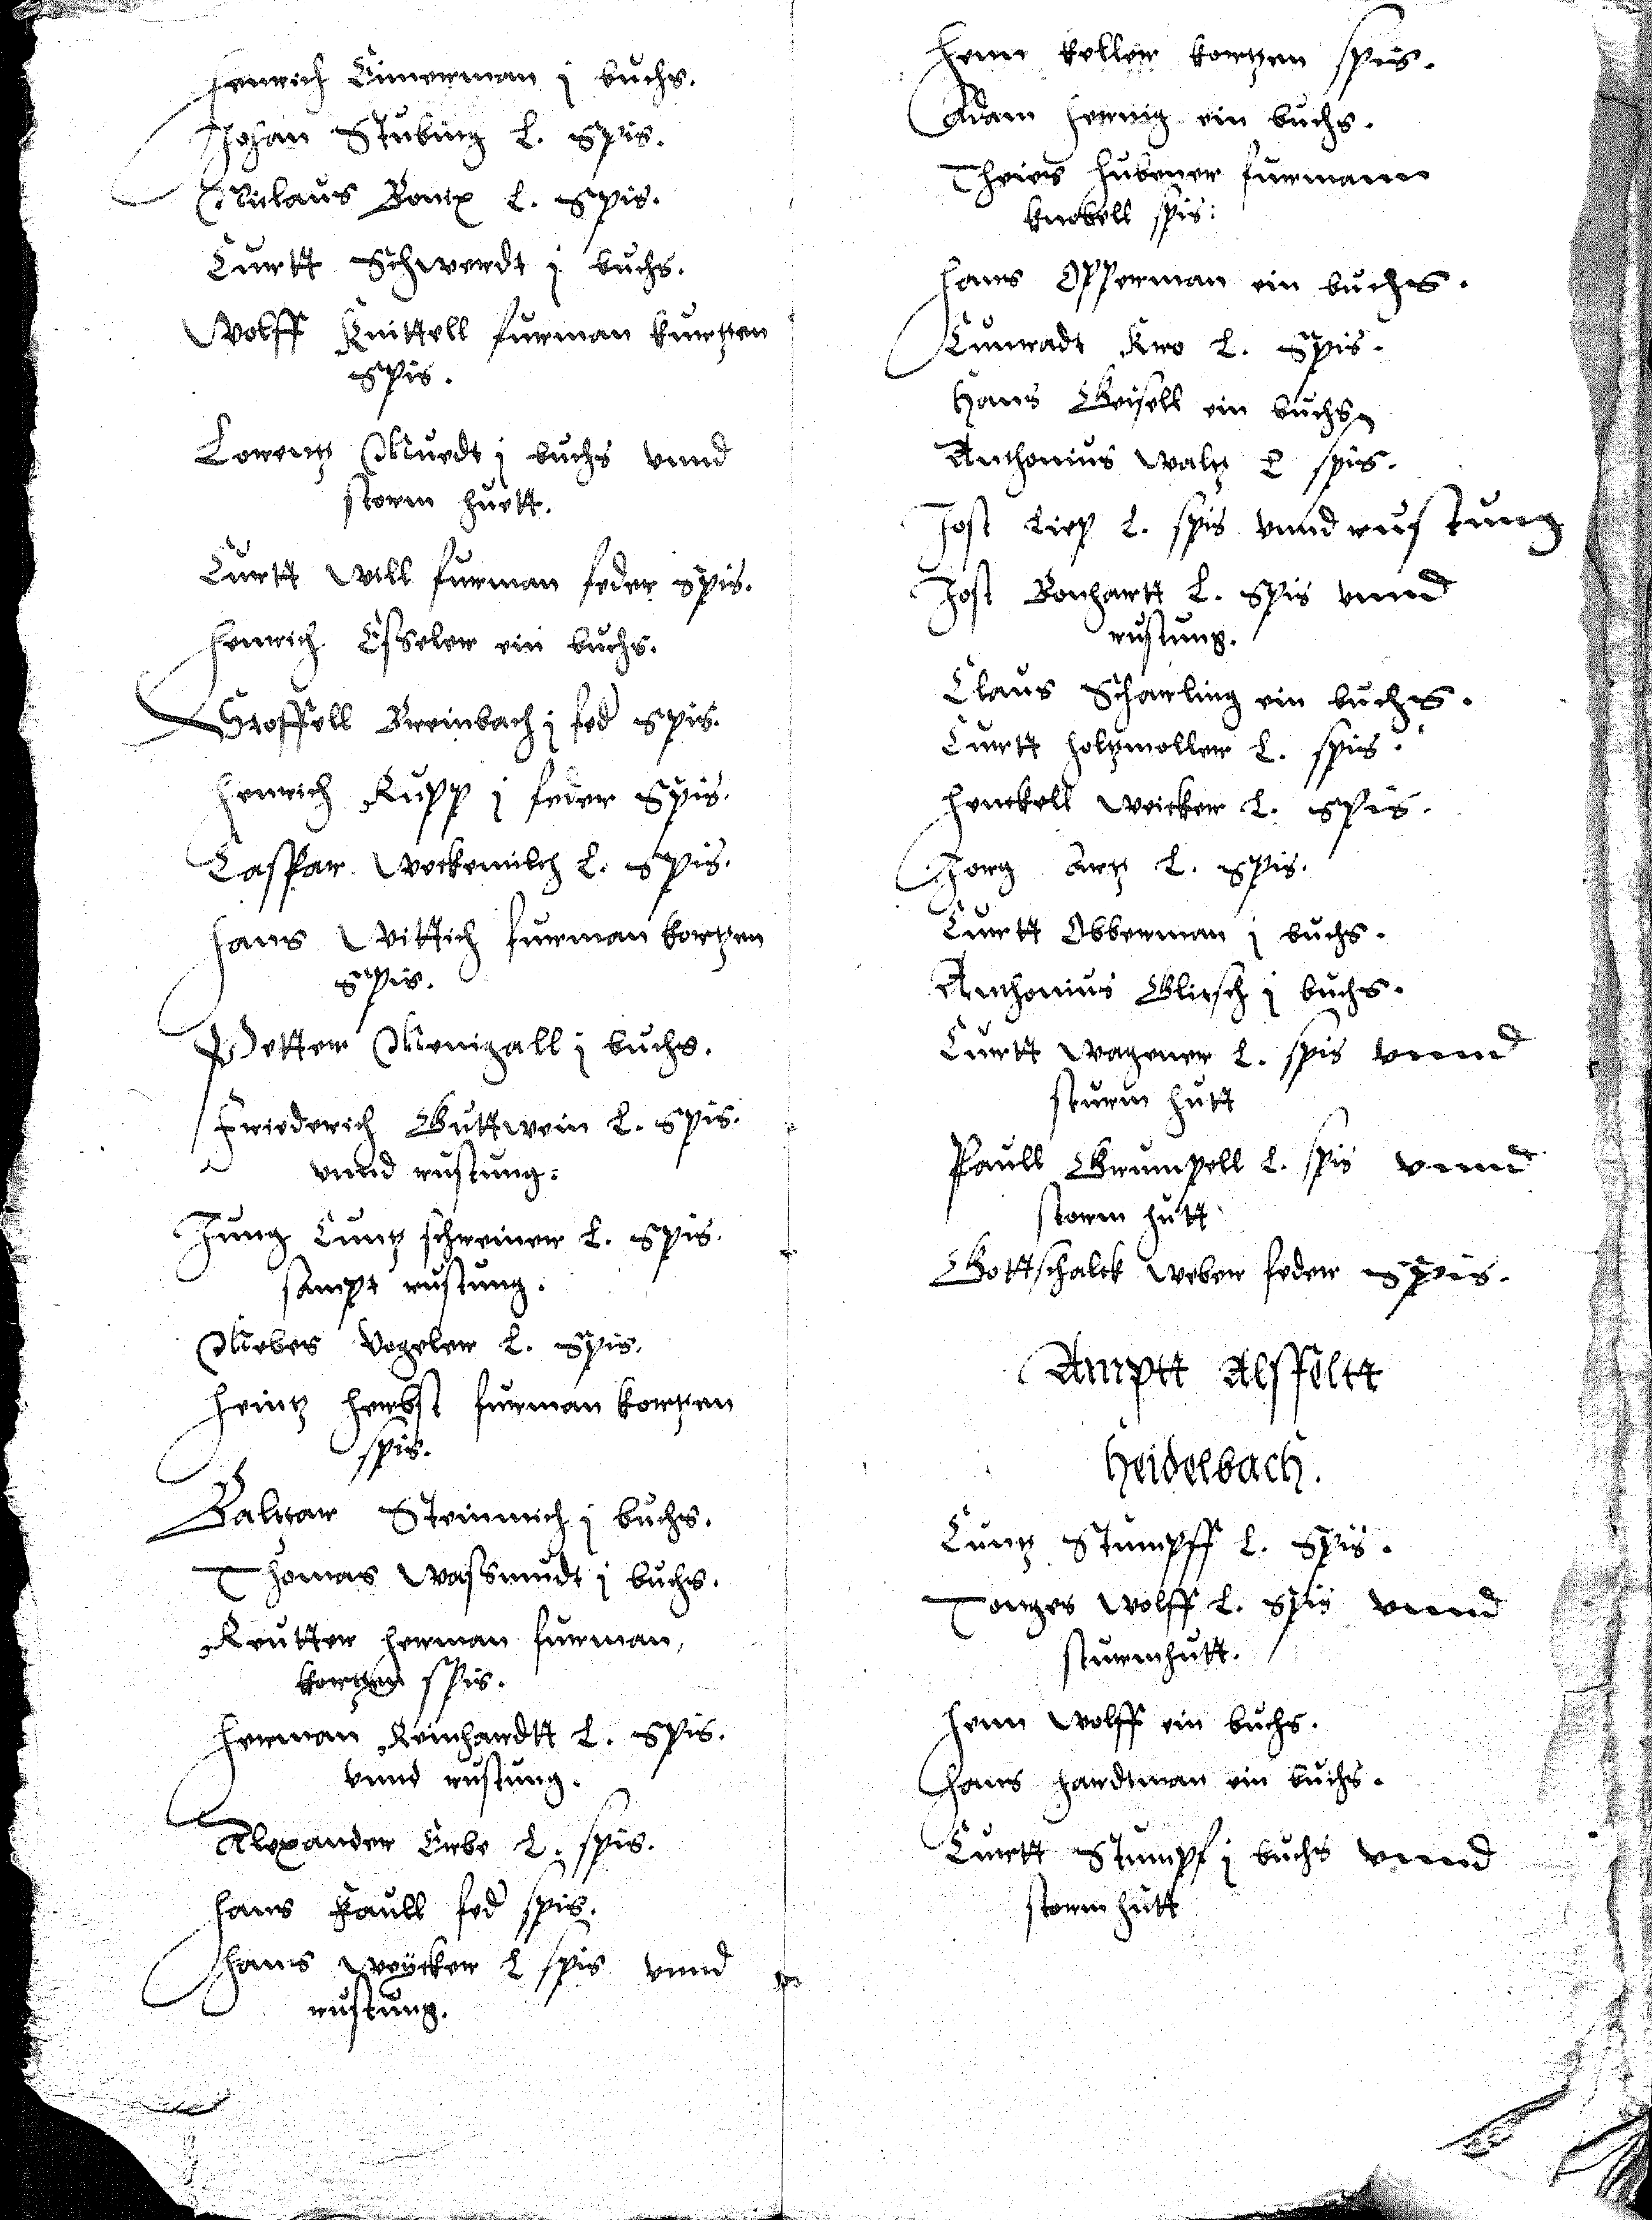 Henrich Cimerman j buchs.
Johan Stubing L. Spis.
Niclaus Bontx L. Spis.
Curtt Schwerdt j buchs.
Wolff Knittell furman kurtzen
Spis.
Lorentz Muedt j buchs vnnd
storm huett.
Curtt Will furman feder Spis.
Henrich Esseler ein buchs.
Stoffell Breinbach j fed Spis.
Henrich Rupp j feder Spis.
Caspar Weckemilch L. Spis.
Hans Wittich furman kortzen
Spis.
Petter Menigall j buchs.
Friederich Guttwein L. Spis.
vnnd rustung.
Jung Cuntz schreiner L. Spis.
sampt rustung.
Mebes Vogeler L. Spis.
Heintz Herbst furman kortzen
spis.
Baltzar Steinrich j buchs.
Thomas Wassmudt j buchs.
Reutter Herman furman,
kortzen spis.
Herman Reinhardtt L. Spis.
vnnd rustung.
Alexander Erbe L. spis.
Hans Faull fed spis.
Hans Weÿcker L spis vnnd
rustung.
Henn Keller kortzen spis.
Adam Hennig ein buchs.
Theies Hubener furmann
knebell spis:
Hans Opperman ein buchs.
Cunradt Kro L. Spis.
Hans Geisell ein buchs
Anthonius Waltz L spis.
Jost Liep L. spis vnnd rustung
Jost Bonhartt L. Spis vnnd
rustung.
Claus Scharling ein buchs.
Curtt Holtzmoller L. spis.
Henckell Weicker L. Spis.
Jorg Artz L. Spis.
Curtt Obberman j buchs.
Anthonius Gliesch j buchs.
Curtt Wagener L. spis vnnd
sturm hutt
Paull Grumpell L. spis vnnd
storm hutt
Gottschalck Weber feder Spis.
Amptt Alsfeltt
Heidelbach.
Cuntz Stumpff L. Spis.
Tonges Wolff L. Spis vnnd
sturmhutt.
Henn Wolff ein buchs.
Hans Hardtman ein buchs.
Curtt Stumpf j buchs vnnd
storm hutt